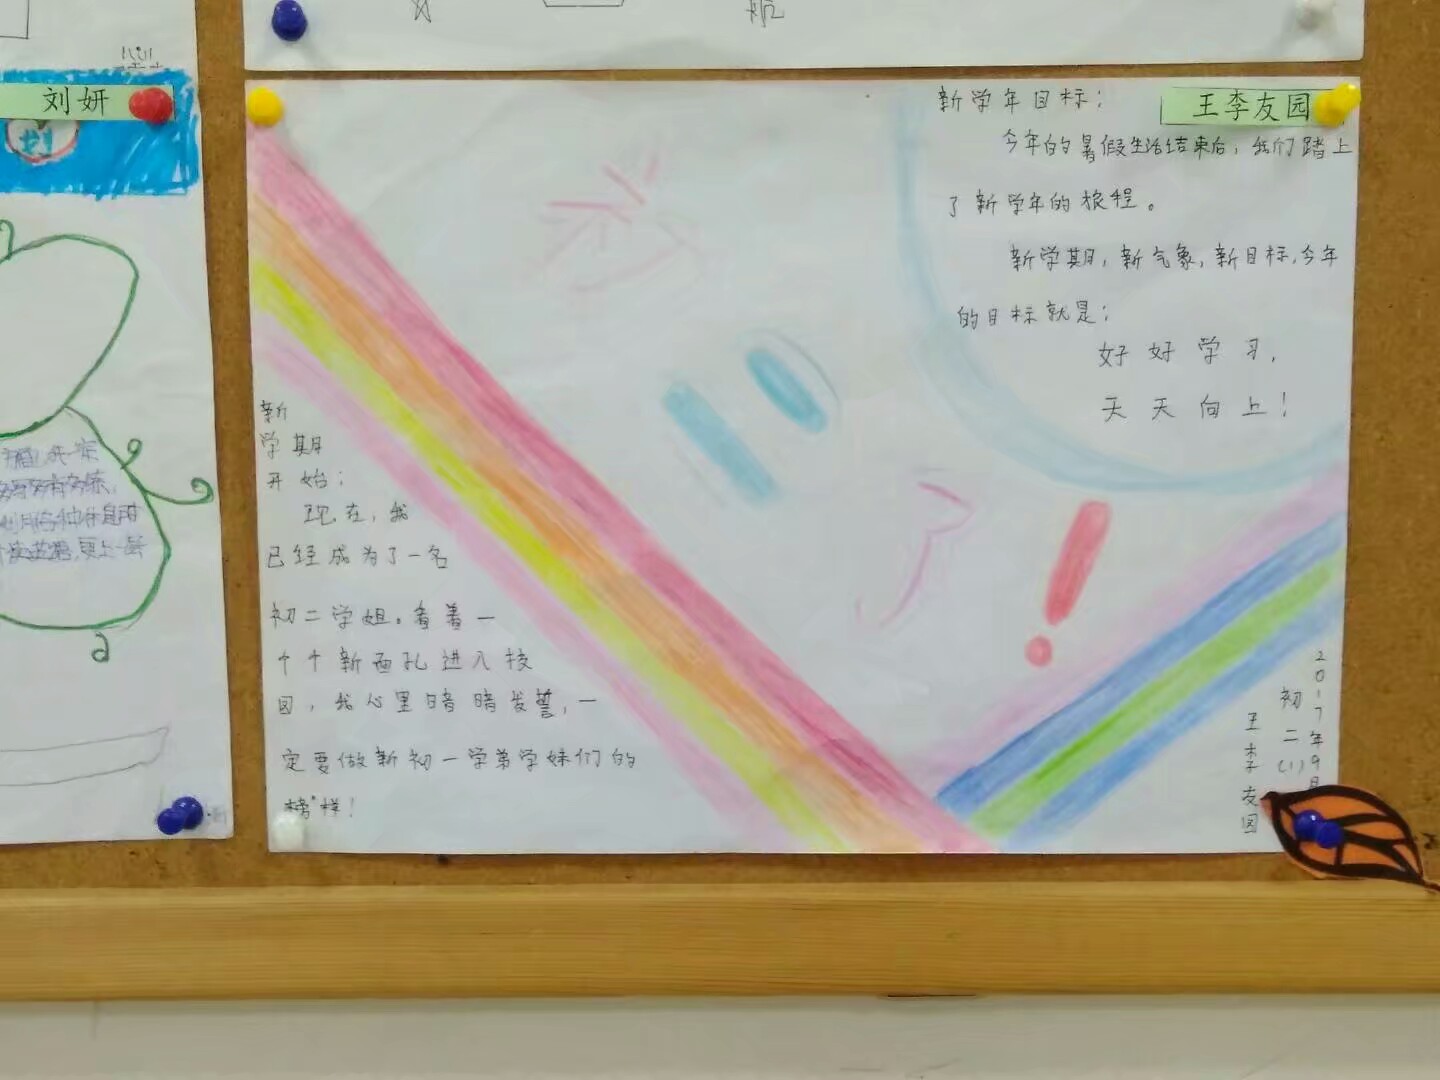 刘妍
王李友园
新学年目标：
今年的暑假生活结束后，我们踏上
了新学年的旅程。
新学期，新气象，新目标，今年
的目标就是：
好好学习，
天天向上！
新
学期
开始：
现在，我
已经成为了一名
初二学姐。看着一
个个新面孔进入校
园，我心里暗暗发誓，一
定要做新初一学弟学妹们的
榜样！
2017年9月
初二(1)
王李友园